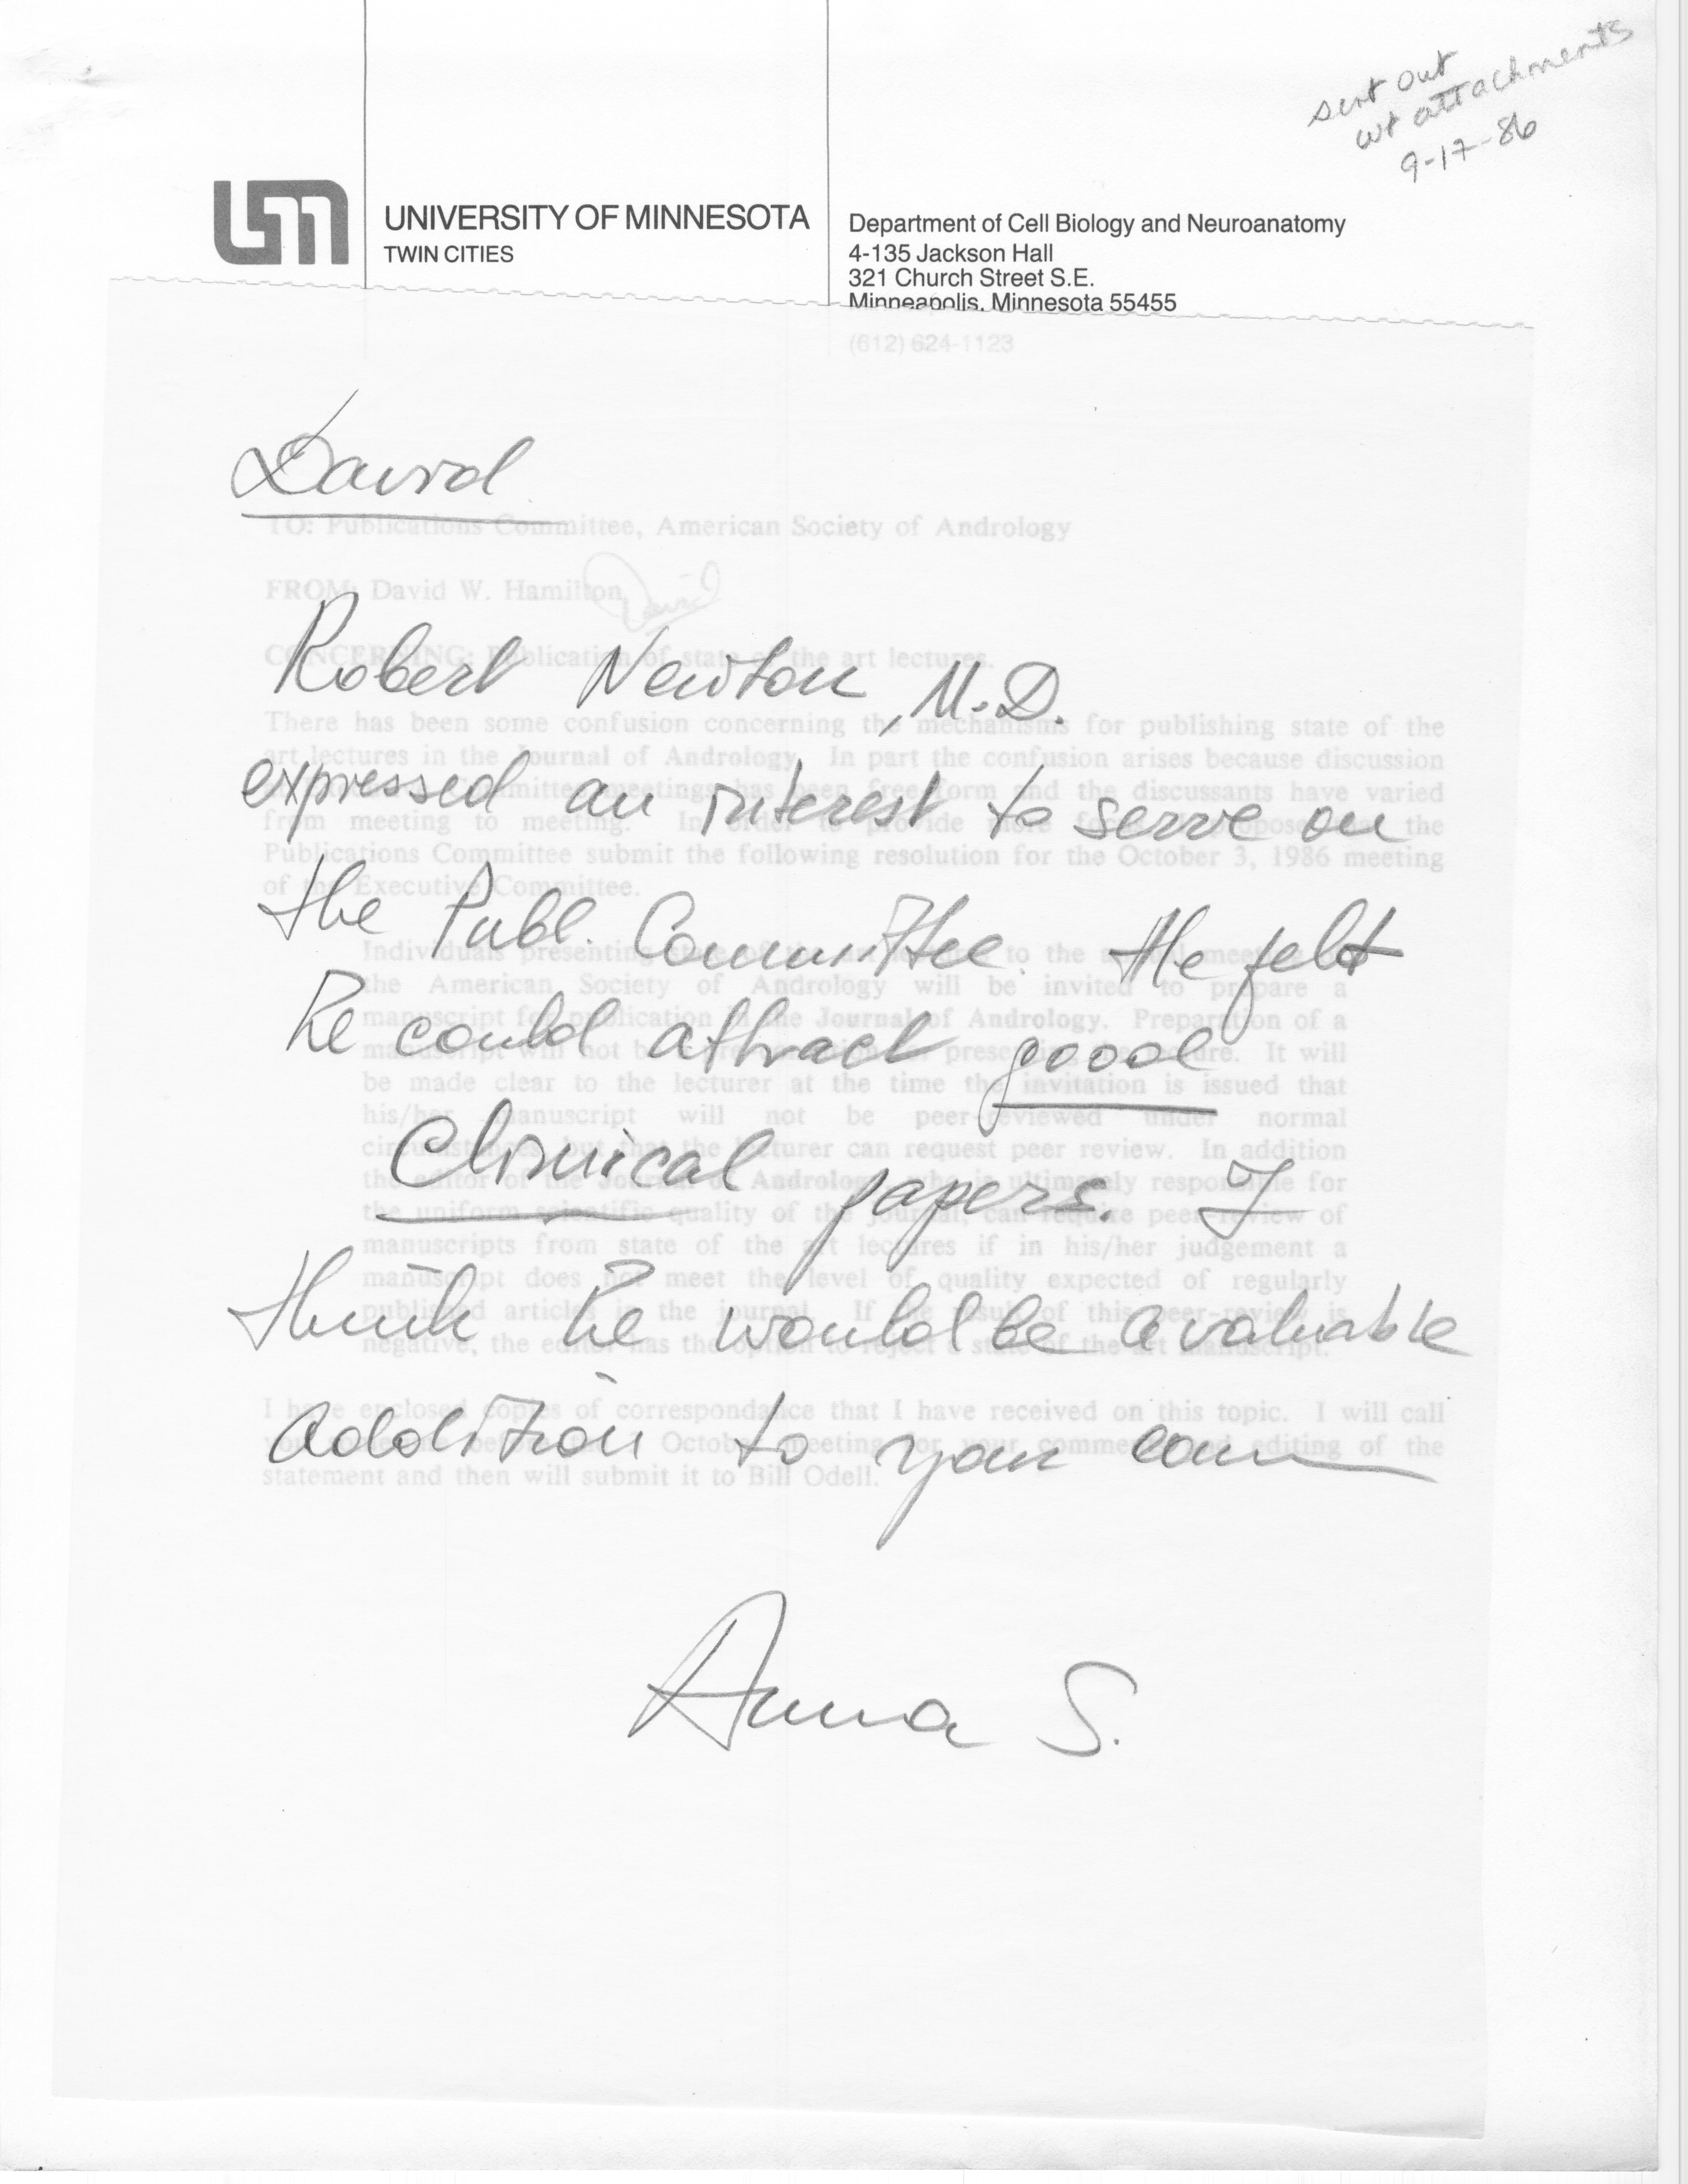 sent out
wt attachments
9-17-86
UNIVERSITY OF MINNESOTA
TWIN CITIES
Department of Cell Biology and Neuroanatomy
4-135 Jackson Hall
321 Church Street S.E.
Minneapolis, Minnesota 55455
(612) 624-1123
David
TO: Publications Committee, American Society of Andrology
FROM: David W. Hamilton
David
CONCERNING: Publication of state of the art lectures.
Robert Newton, M.D.
There has been some confusion concerning the mechanisms for publishing state of the
art lectures in the Journal of Andrology. In part the confusion arises because discussion
expressed an interest to serve on
Committee meetings has been free form and the discussants have varied
from meeting to meeting. In order to provide more the
Publications Committee submit the following resolution for the October 3, 1986 meeting
of the Executive Committee.
the Publ. Committee. He felt
Individuals presenting state of the art to the
the American Society of Andrology will be invited to prepare a
he could attract good
manuscript for publication in the Journal of Andrology. Preparation of a
manuscript will not be It will
be made clear to the lecturer at the time the invitation is issued that
his/her manuscript will not be peer-reviewed under normal
Clinical papers. I
but that the lecturer can request peer review. In addition
the editor of the Journal of Andrology, who is ultimately responsible for
the uniform scientific quality of the journal, can require peer-review of
manuscripts from state of the art lectures if in his/her judgement a
manuscript does not meet the level of quality expected of regularly
think he would be a valuable
published articles in the journal. If the result of this peer-review is
negative, the editor has the option to reject a state of the art manuscript.
addition to your com
I have enclosed copies of correspondance that I have received on this topic. I will call
before October meeting for your comments and editing of the
statement and then will submit it to Bill Odell.
Anna S.